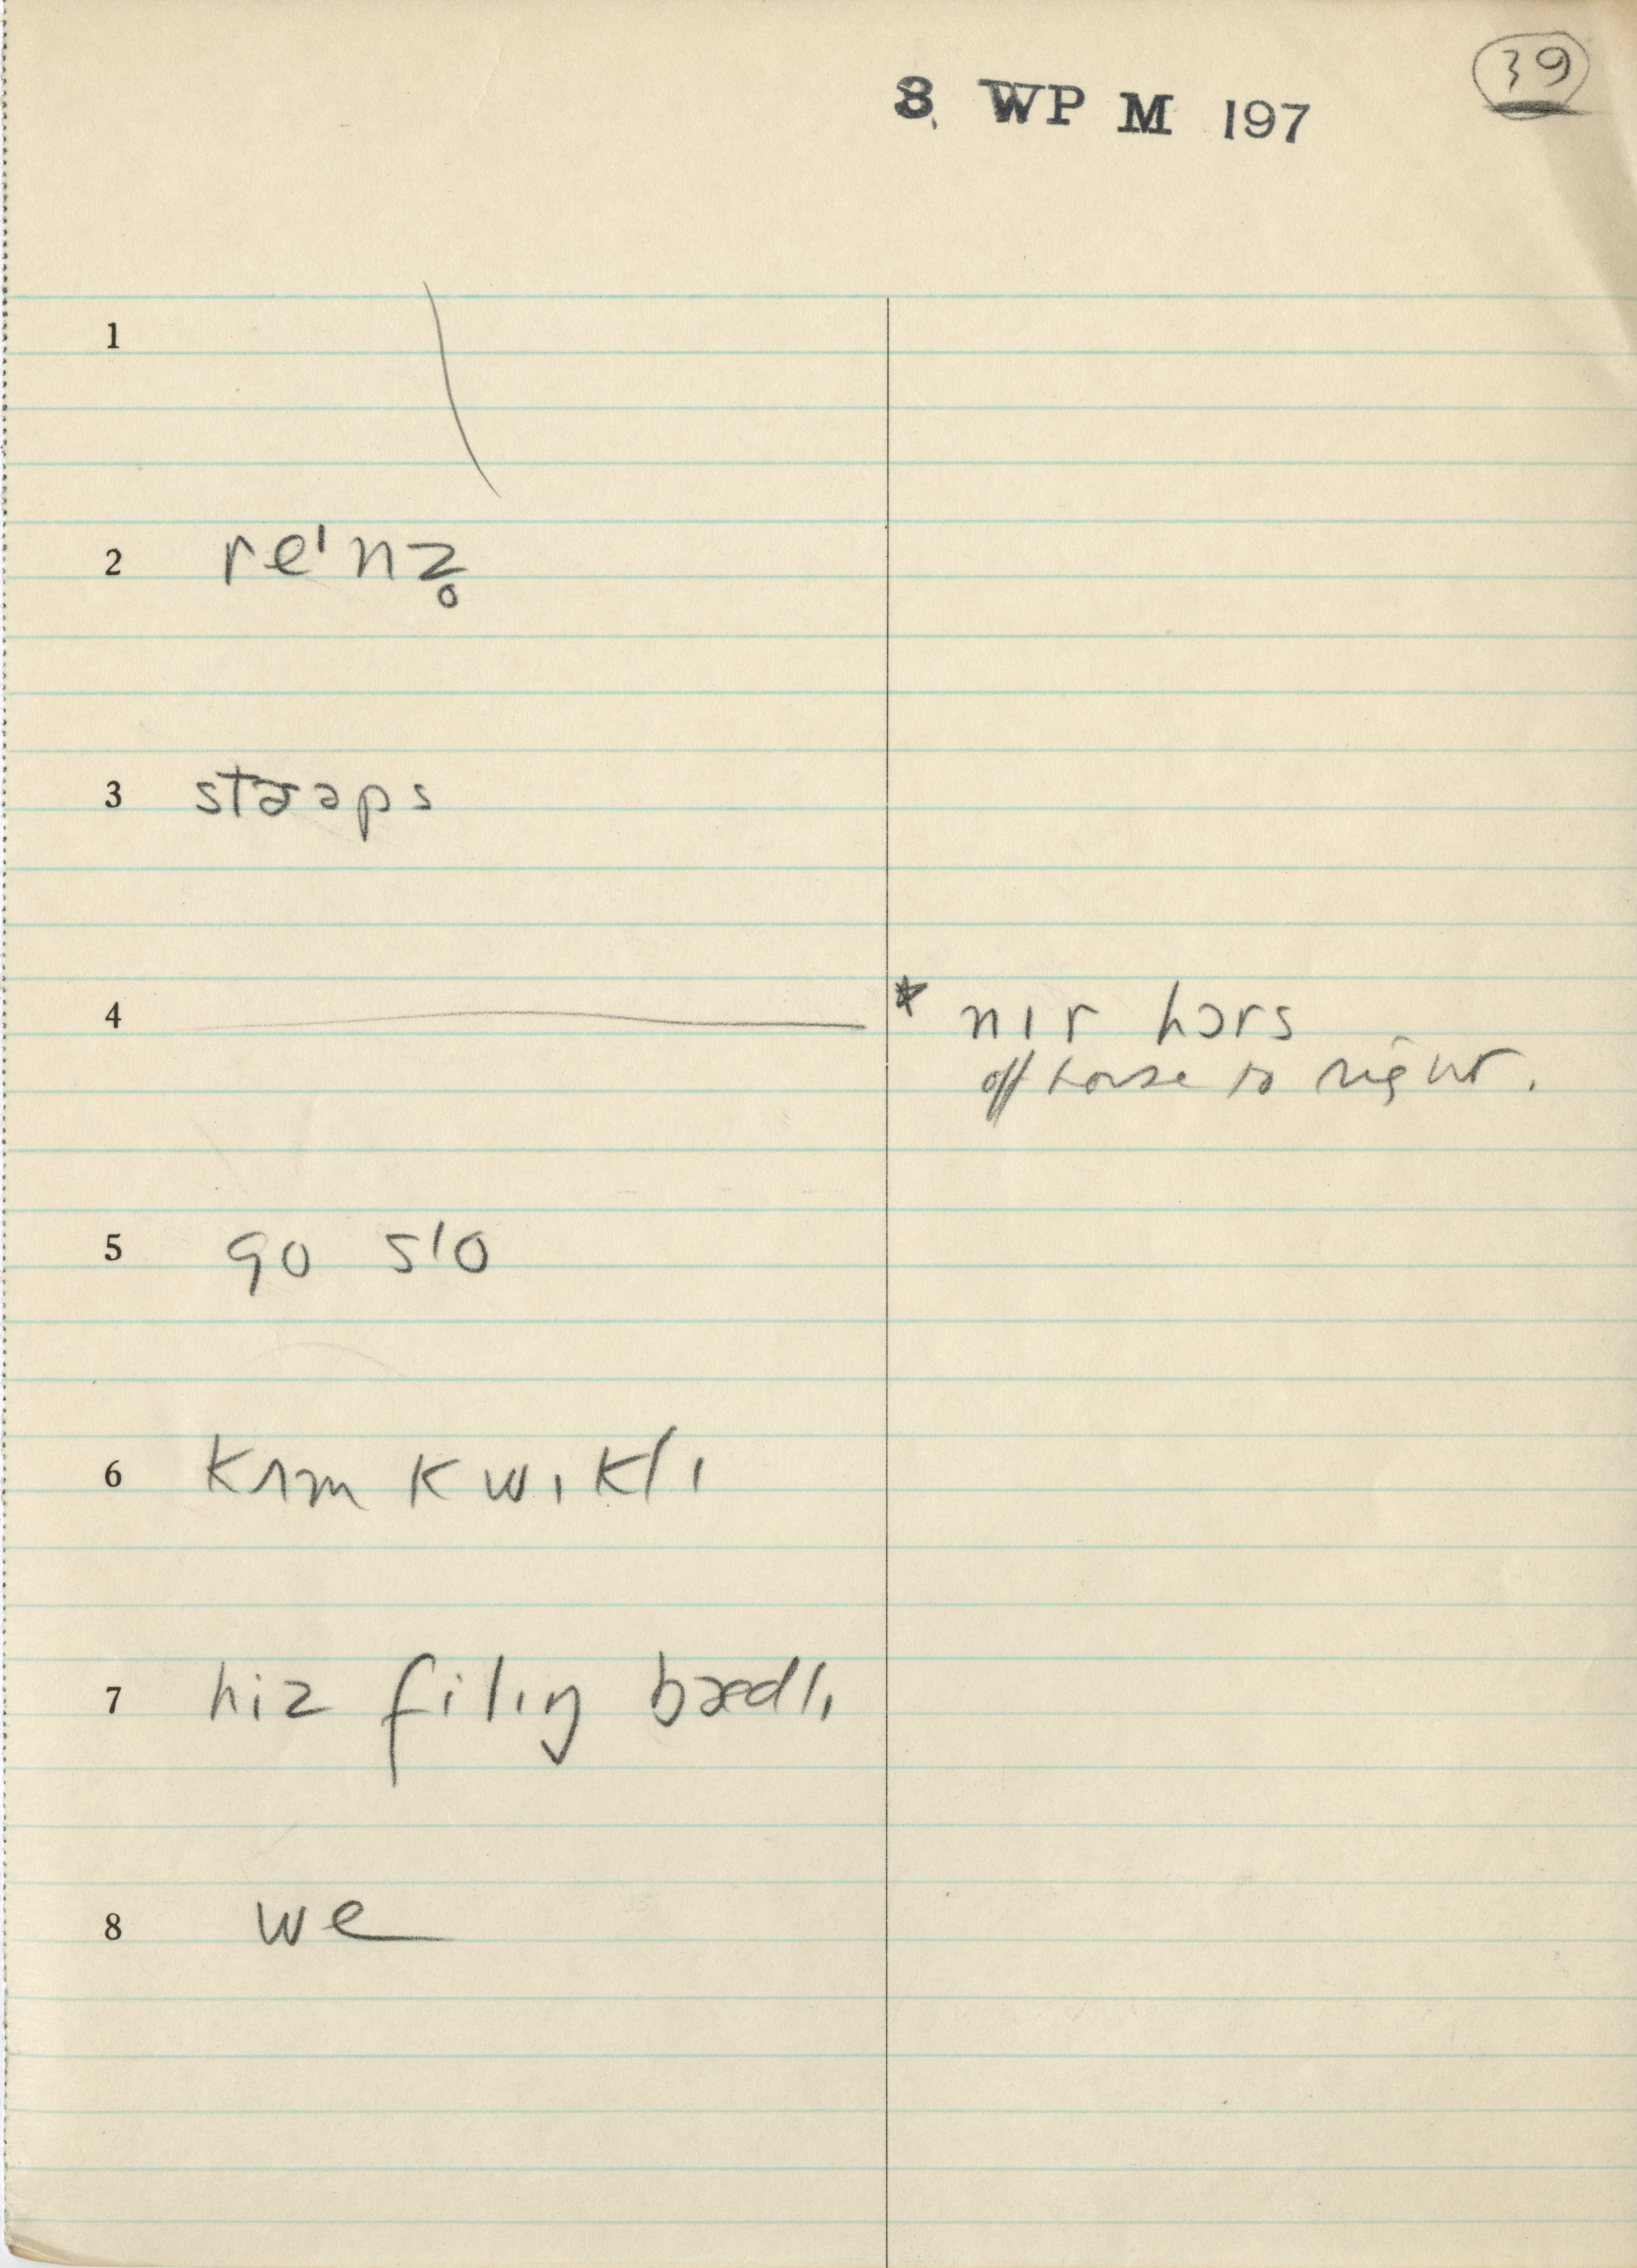 39
8 WP M 197
1
2 reᶦnz̥
3 stɚəps
4 * nɪr hɔrs
off horse to right.
5 go slo
6 kʌm kwɪklɪ
7 hiz filɪŋ bædlɪ
8 we